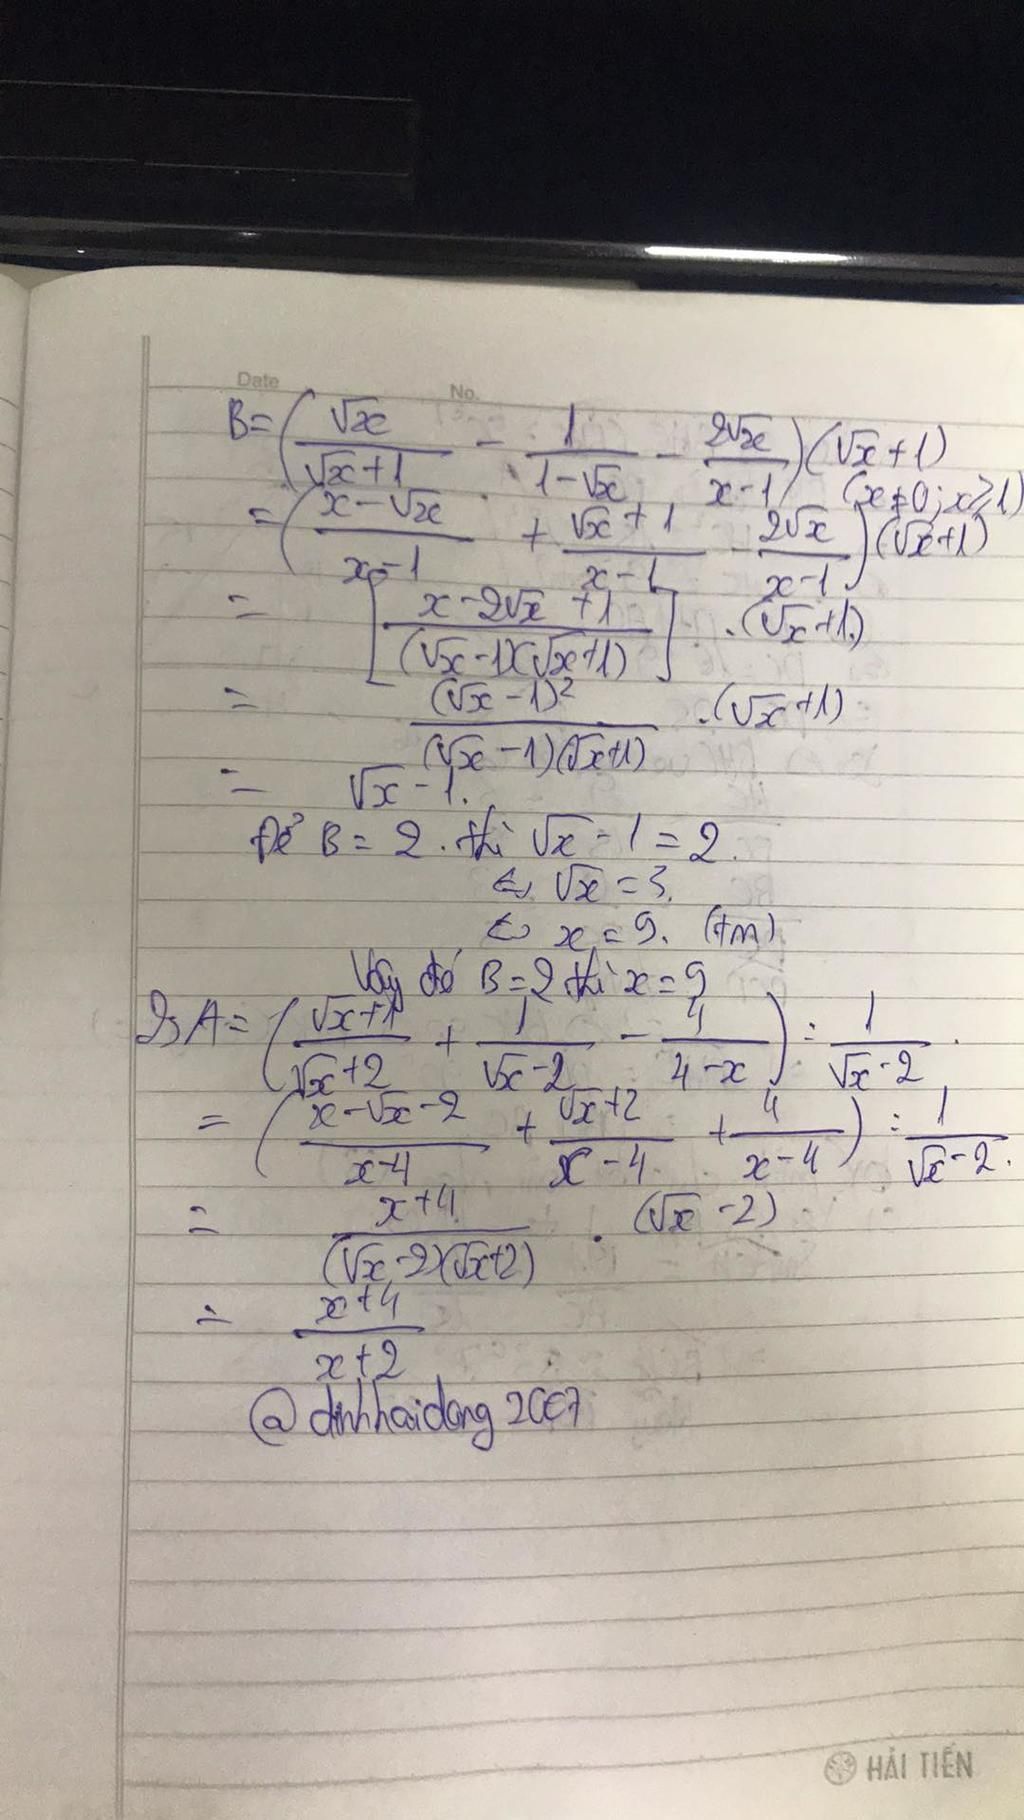 Date No.
B = (√x/(√x+1) - 1/(1-√x) - 2√x/(x-1)) (√x+1)
(x≠0; x≥1)
= ((x-√x)/(x-1) + (√x+1)/(x-1) - 2√x/(x-1)) (√x+1)
= [(x-2√x+1)/((√x-1)(√x+1))] . (√x+1)
= (√x-1)²/((√x-1)(√x+1)) . (√x+1)
= √x - 1.
Để B = 2 . thì √x - 1 = 2.
⇔ √x = 3.
⇔ x = 9. (tm)
Vậy để B = 2 thì x = 9
2, A = ((√x+1)/(√x+2) + 1/(√x-2) - 4/(4-x)) : 1/(√x-2) .
= ((x-√x-2)/(x-4) + (√x+2)/(x-4) + 4/(x-4)) : 1/(√x-2) .
= (x+4)/((√x-2)(√x+2)) . (√x-2)
= (x+4)/(x+2)
@dinhhaidang2007
HẢI TIẾN